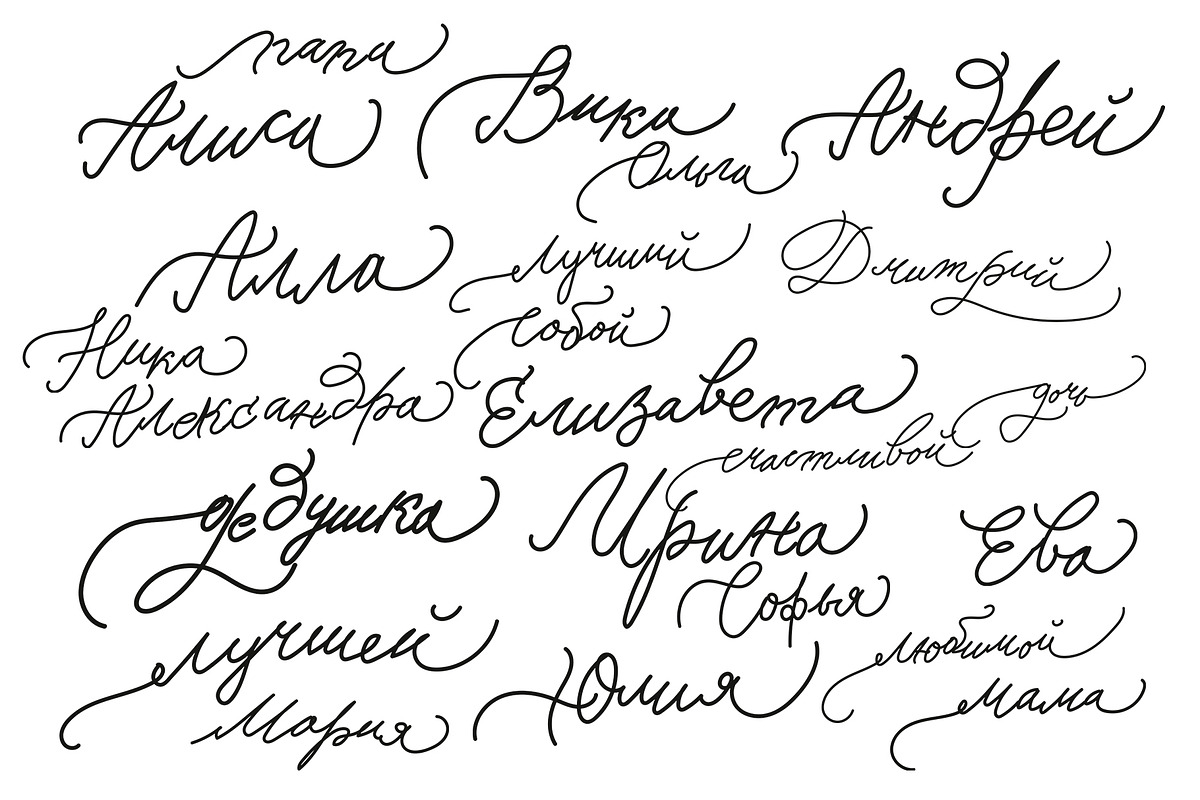 папа
Алиса
Вика
Андрей
Ольга
Алла
лучший
Дмитрий
Ника
собой
Александра
Елизавета
дочь
счастливой
дедушка
Ирина
Ева
Софья
лучшей
любимой
Мария
Юлия
мама